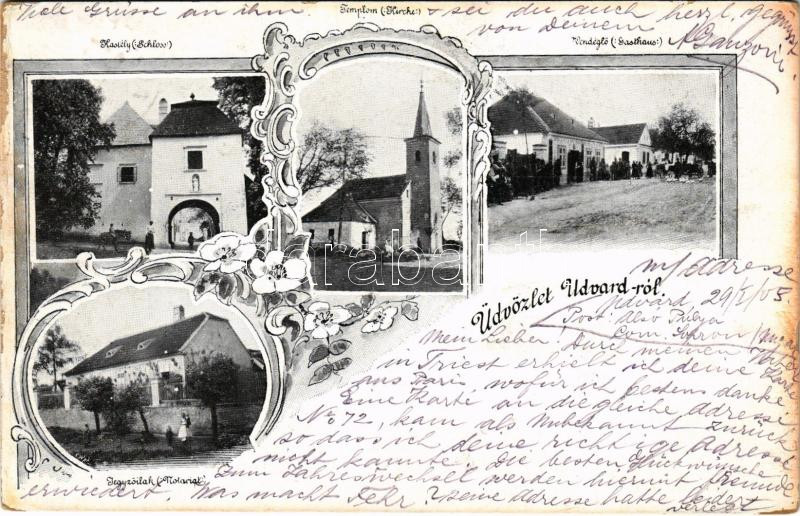 Viele Grüsse an ihm - sei du auch herzl. gegrüsst
von deinem
Templom (:Kirche:)
Kastély (:Schloss:)
Vendéglő (:Gasthaus:)
darabanth
Üdvözlet Udvard-ról
m/ Adresse
Udvard 29/1/05
Post Alsó Pulya
Com. Sopron
Mein Lieber. Durch meinen
in Triest erhielt ich deine Karte
aus Paris, wofür ich bestens danke
Eine Karte an die gleiche Adresse
No 72, kam als Unbekannt zurück
so dass ich deine richtige Adresse
nicht kannte. Die besten Glückwünsche
Zum Jahreswechsel werden hiermit
erwiedert. Was macht Fekr? seine Adresse hatte leider
verlegt
Jegyzőilak (:Notariat:)